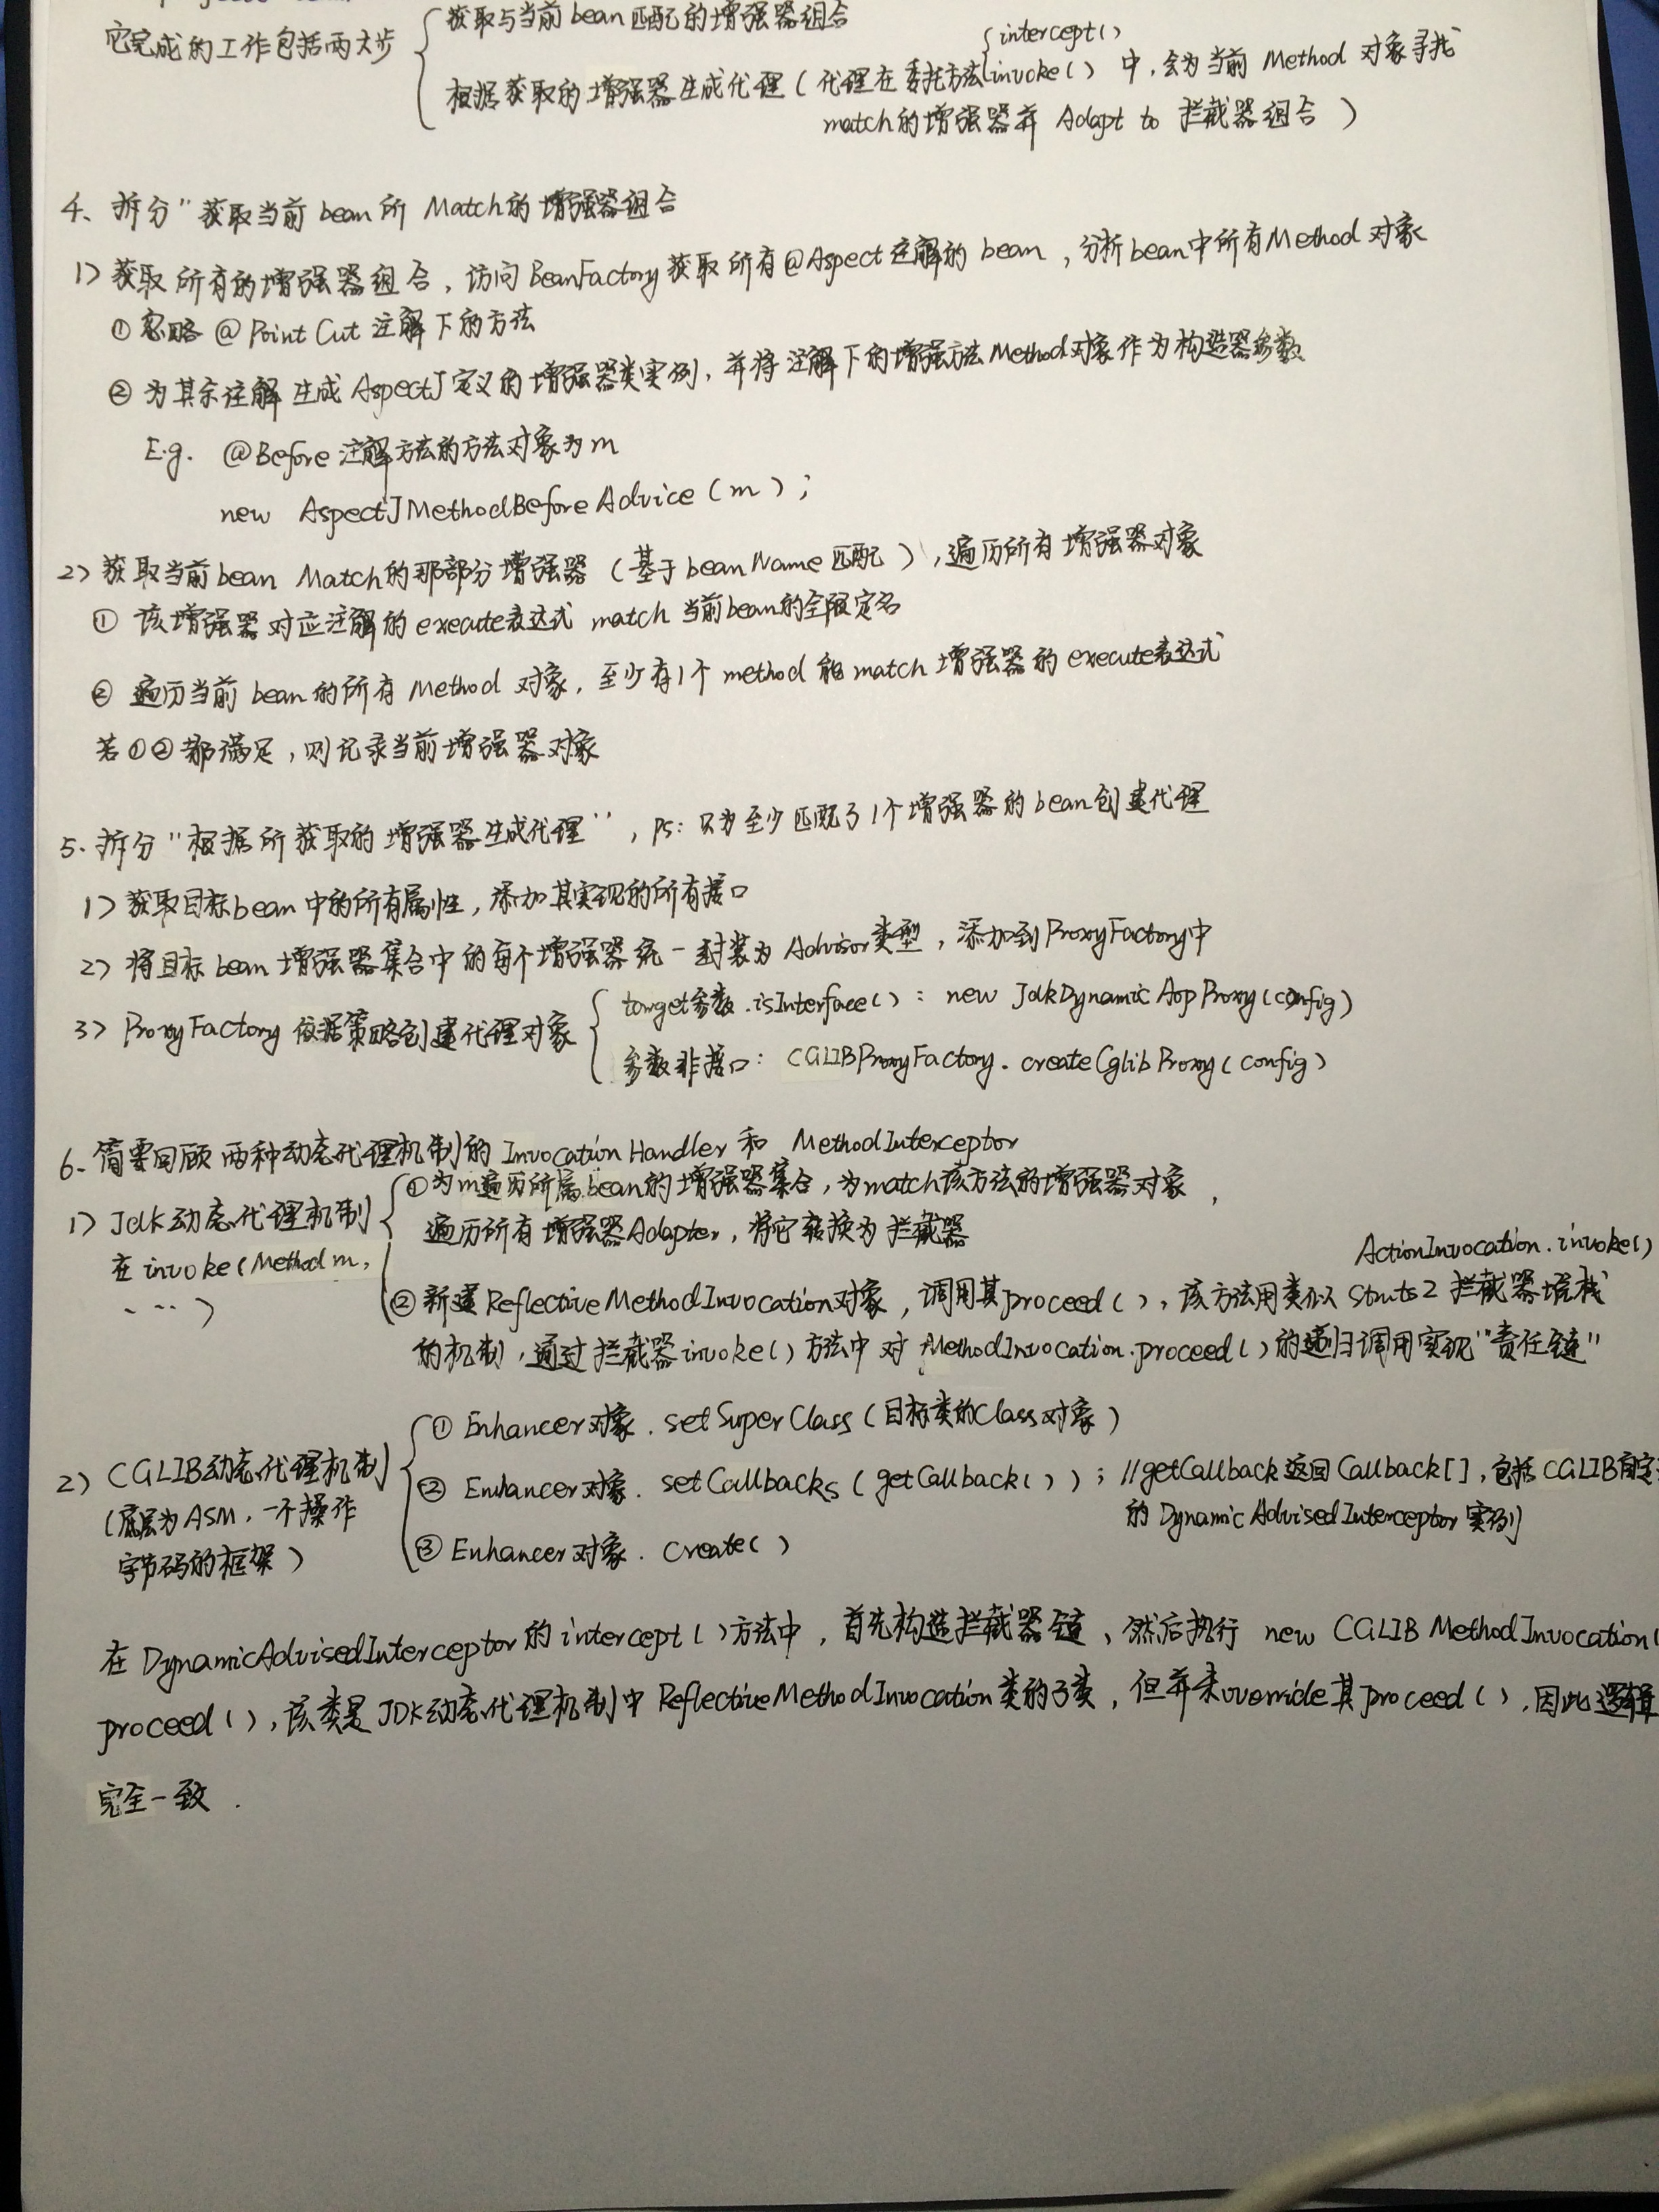 它完成的工作包括两大步
获取与当前bean匹配的增强器组合
intercept()
根据获取的增强器生成代理(代理在委托方法invoke()中,会为当前Method对象寻找
match的增强器并Adapt to 拦截器组合)
4、拆分"获取当前bean所Match的增强器组合
1>获取所有的增强器组合,访问BeanFactory获取所有@Aspect注解的bean,分析bean中所有Method对象
①忽略@PointCut注解下的方法
②为其余注解生成AspectJ定义的增强器类实例,并将注解下的增强方法Method对象作为构造器参数
E.g. @Before注解方法的方法对象为m
new AspectJMethodBeforeAdvice(m);
2>获取当前bean Match的那部分增强器(基于beanName匹配),遍历所有增强器对象
①该增强器对应注解的execute表达式match当前bean的全限定名
②遍历当前bean的所有Method对象,至少有1个method能match增强器的execute表达式
若①②都满足,则记录当前增强器对象
5.拆分"根据所获取的增强器生成代理",ps:只为至少匹配了1个增强器的bean创建代理
1>获取目标bean中的所有属性,添加其实现的所有接口
2>将目标bean增强器集合中的每个增强器统一封装为Advisor类型,添加到ProxyFactory中
3>ProxyFactory依据策略创建代理对象
target参数.isInterface():new JdkDynamicAopProxy(config)
参数非接口:CGLIBProxyFactory.createCglibProxy(config)
6.简要回顾两种动态代理机制的InvocationHandler和MethodInterceptor
1>Jdk动态代理机制
在invoke(Method m,
...)
①为m遍历所属bean的增强器集合,为match该方法的增强器对象,
遍历所有增强器Adapter,将它转换为拦截器
ActionInvocation.invoke()
②新建ReflectiveMethodInvocation对象,调用其proceed(),该方法用类似Struts2拦截器堆栈
的机制,通过拦截器invoke()方法中对MethodInvocation.proceed()的递归调用实现"责任链"
2)CGLIB动态代理机制
(底层为ASM,一个操作
字节码的框架)
①Enhancer对象.setSuperClass(目标类的Class对象)
②Enhancer对象.setCallbacks(getCallback());//getCallback返回Callback[],包括CGLIB自定
的DynamicAdvisedInterceptor实例
③Enhancer对象.create()
在DynamicAdvisedInterceptor的intercept()方法中,首先构造拦截器链、然后执行 new CGLIBMethodInvocation(
proceed(),该类是JDK动态代理机制中ReflectiveMethodInvocation类的子类,但并未override其proceed(),因此逻辑
完全一致.